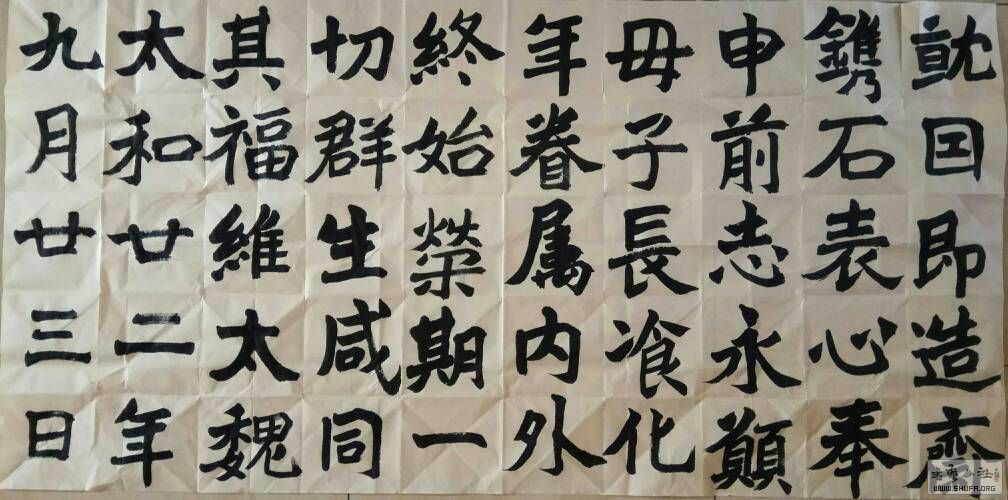 就囙即造齋
鐫石表心奉
申前志永願
母子長飡化
年眷属内外
終始榮期一
切群生咸同
其福維太魏
太和廿二年
九月廿三日
WWW.SHUFA.ORG